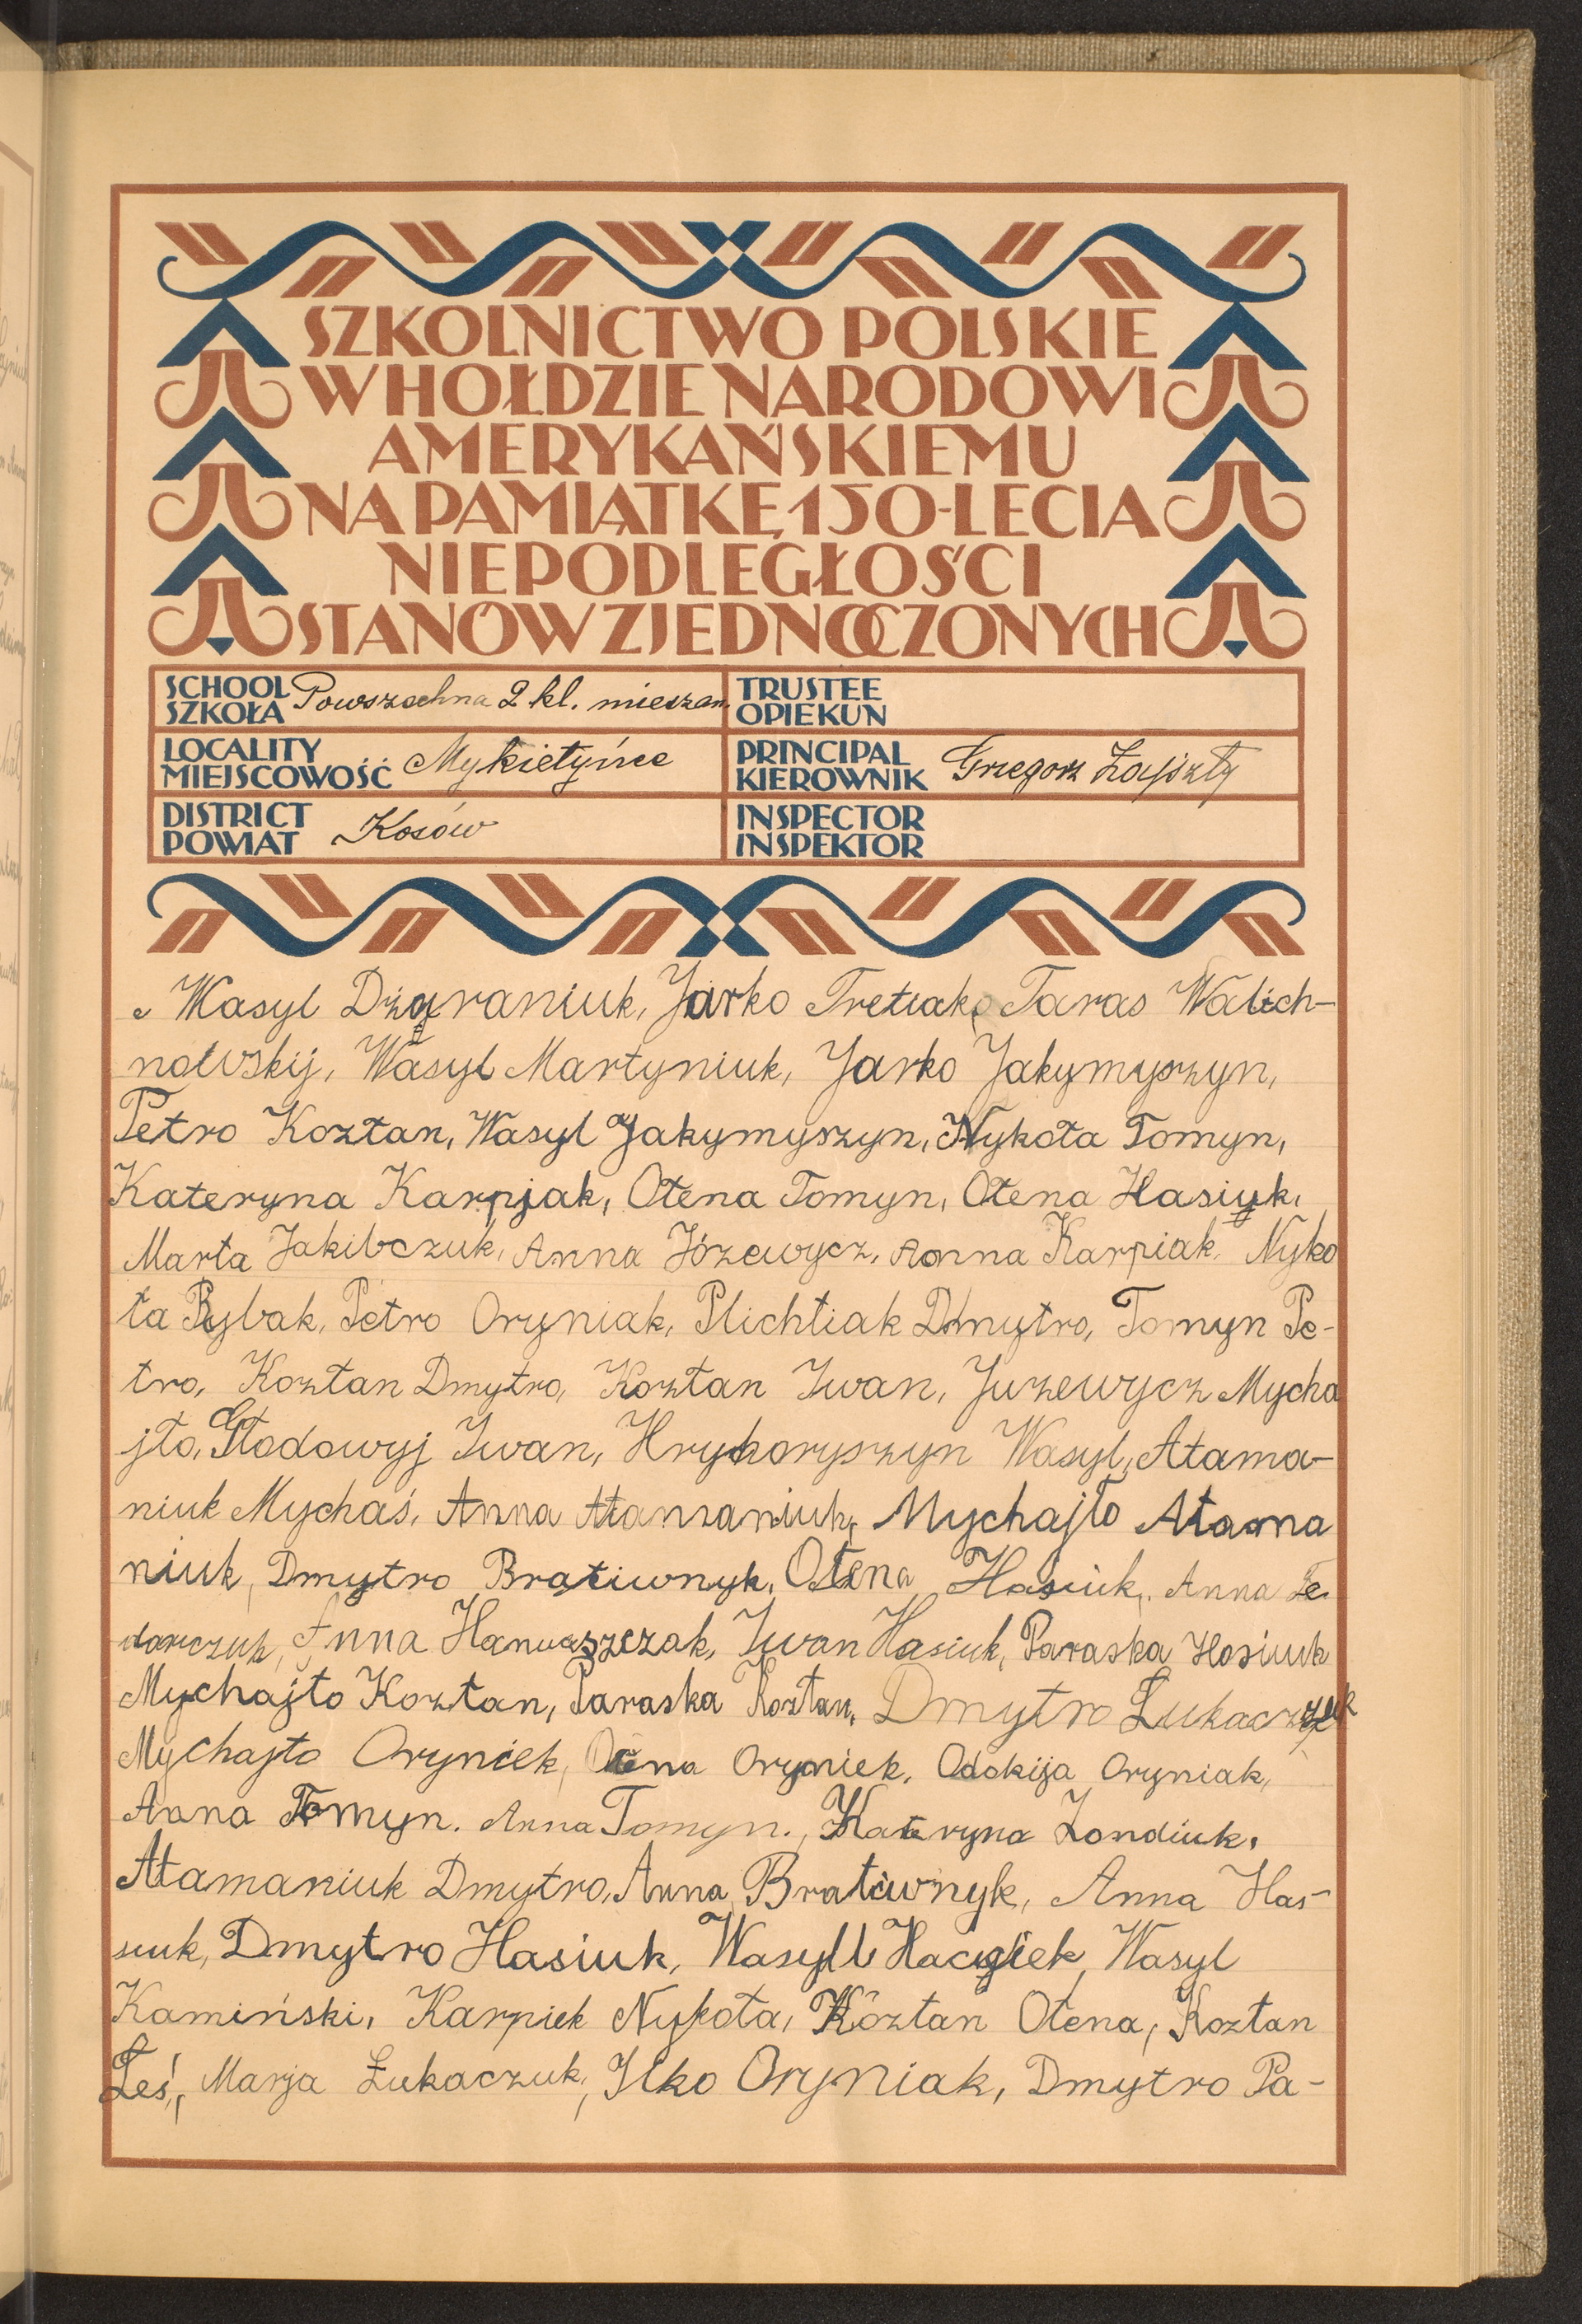 SZKOLNICTWO POLSKIE
W HOŁDZIE NARODOWI
AMERYKAŃSKIEMU
NA PAMIĄTKĘ 150-LECIA
NIEPODLEGŁOŚCI
STANÓW ZJEDNOCZONYCH
SCHOOL SZKOŁA Powszechna 2 kl. mieszan.
TRUSTEE OPIEKUN
LOCALITY MIEJSCOWOŚĆ Mykietyńce
PRINCIPAL KIEROWNIK Grzegorz
DISTRICT POWIAT Kosów
INSPECTOR INSPEKTOR
Wasyl Jarko Tretiak, Taras Walich-
nowskij, Wasyl Martyniuk, Jarko Jakymyszyn,
Petro Kozłan, Wasyl Jakymyszyn, Nykoła Tomyn,
Kateryna Karpjak, Ołena Tomyn, Ołena Hasiuk,
Marta Jakibczuk, Anna Józewycz, Anna Karpiak, Nyko
ła Rybak, Petro Oryniak, Plichtiak Dmytro, Tomyn Pe-
tro, Kozłan Dmytro, Kozłan Iwan, Juzewycz Mycha
jło, Głodowyj Iwan, Hryhoryszyn Wasyl, Atama-
niuk Mychaś, Anna Atamaniuk, Mychajło Atama
niuk, Dmytro Bratiwnyk, Ołena Hasiuk, Anna Fe
darczuk, Anna Iwan Hasiuk, Paraska Hasiuk
Mychajło Kozłan, Paraska Kozłan, Dmytro Łukaczuk
Mychajło Oryniek, Ołena Oryniek, Odokija Oryniak,
Anna Tomyn. Anna Tomyn., Kateryna Londiuk,
Atamaniuk Dmytro, Anna Bratiwnyk, Anna Has-
iuk, Dmytro Hasiuk, Wasyll Wasyl
Kamiński, Karpiek Nykoła, Kozłan Ołena, Kozłan
Łeś, Marja Łukaczuk, Ilko Oryniak, Dmytro Pa-